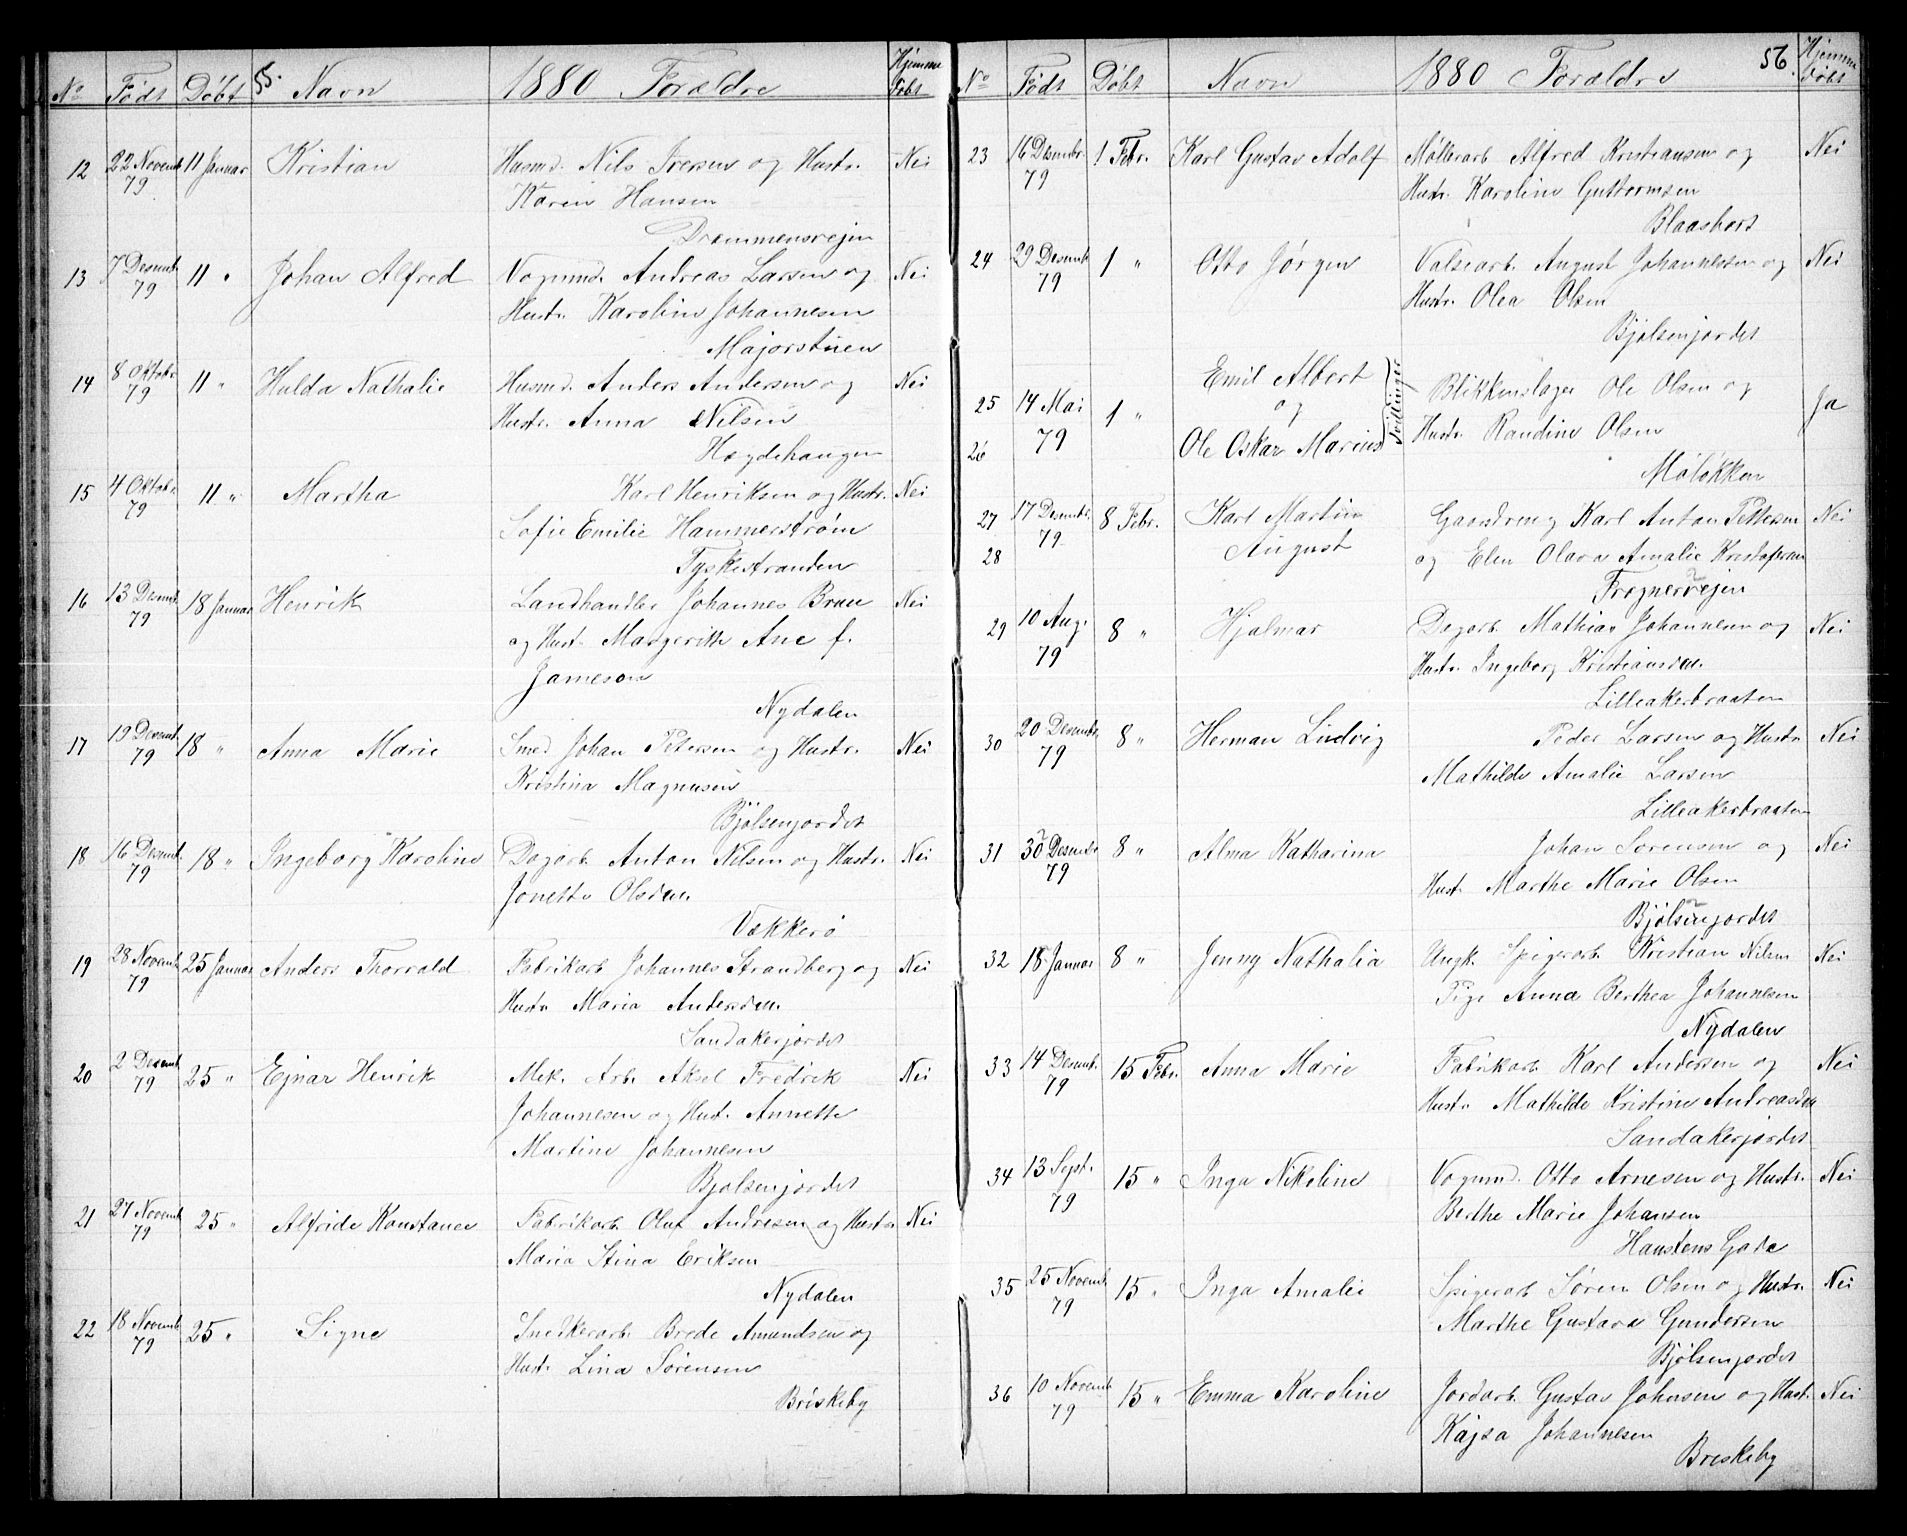 55.
No Født Døbt Navn 1880 Forældre Hjemme døbt
12 22 Novemb. 79 11 Januar Kristian Husmd. Nils Iversen og Hustr. Nei
Karen Hansen
Drammensvejen
13 7 Desemb. 79 11 " Johan Alfred Vognmd. Andreas Larsen og Nei
Hustr. Karoline Johannesen
Majorstuen
14 8 Oktobr. 79 11 " Hulda Nathalie Husmd. Anders Andersen og Nei
Hustr. Anna Nilsen
Hægdehaugen
15 4 Oktobr. 79 11 " Martha Karl Henriksen og Hustr. Nei
Sofie Emilie Hammerstrøm
Tyskestranden
16 13 Desemb. 79 18 Januar Henrik Landhandler Johannes Bruu Nei
og Hust. Margerith Ane f.
Jameson
Nydalen
17 19 Desemb. 79 18 " Anna Marie Smed Johan Petersen og Hustr. Nei
Kristina Magnusen
Bjølsenjordet
18 16 Desemb. 79 18 " Ingeborg Karoline Dagarb. Anton Nilsen og Hustr. Nei
Jonette Olsdatt.
Vækkerø
19 28 Novemb. 79 25 Januar Anders Thorvald Fabrikarb. Johannes Strandberg og Nei
Hustr. Maria Andersdatt.
Sandakerjordet
20 2 Desemb. 79 25 " Ejnar Henrik Mek. Arb. Aksel Fredrik Nei
Johannesen og Hust. Annette
Martine Johannesen
Bjølsenjordet
21 27 Novemb. 79 25 " Alfride Konstance Fabrikarb. Oluf Andresen og Hustr. Nei
Maria Stina Eriksen
Nydalen
22 18 Novemb. 79 25 " Signe Snedkerarb. Brede Amundsen og
Hustr. Lina Sørensen
Briskeby
56
No Født Døbt Navn 1880 Forældre Hjemme døbt
23 16 Desembr. 79 1 Febr. Karl Gustav Adolf Møllerarb. Alfred Kristiansen og Nei
Hustr. Karoline Guttormsen
Blaasbort
24 29 Desemb. 79 1 " Otto Jørgen Valsearb. August Johannesen og Nei
Hustr. Olea Olsen
Bjølsenjordet
25 14 Mai 79 1 " Emil Albert Blikkenslager Ole Olsen og Ja
og Tvillinger
26 Ole Oskar Marius Hustr. Randine Olsen
Møløkken
27 17 Desembr. 79 8 Febr. Karl Martin Gaardsdreng Karl Anton Pettersen Nei
28 August og Elen Olava Amalie Kristofersen
Frognervejen
29 10 Aug. 79 8 " Hjalmar Dagarb. Mathias Johannesen og Nei
Hustr. Ingeborg Kristiansdatt.
Lilleakerbraaten
30 20 Desembr. 79 8 " Herman Ludvig Peder Larsen og Hustr. Nei
Mathilde Amalie Larsen
Lilleakerbraaten
31 30 Desembr. 79 8 " Alma Katharina Johan Sorensen og Nei
Hust. Marthe Marie Olsen
Bjølsenjordet
32 18 Januar 8 " Jenny Nathalia Ungk. Spigerarb. Kristian Nilsen Nei
Pige Anna Berthea Johannesen
Nydalen
33 14 Desemb. 79 15 Febr. Anna Marie Fabrikarb. Karl Andersen og Nei
Hustr. Mathilde Kristine Andreasdatt
Sandakerjordet
34 13 Sept. 79 15 " Inga Nikoline Vognmd. Otto Arnesen og Hustr. Nei
Berthe Marie Johansen
Haustens Gade
35 25 Novemb. 79 15 " Inga Amalie Spigerarb. Søren Olsen og Hustr. Nei
Marthe Gustava Gundersen
Bjølsenjordet
36 10 Novemb. 79 15 " Emma Karoline Jordarb. Gustav Johnsen og Hust. Nei
Kajsa Johannesen
Breskeby